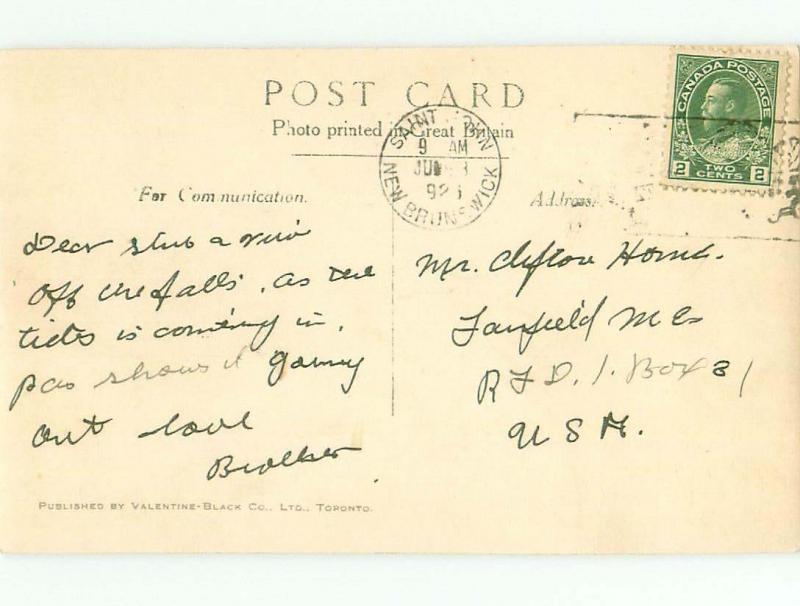 POST CARD
Photo printed in Great Britain
SAINT JOHN
9 AM
JUN
NEW BRUNSWICK
CANADA POSTAGE
2 TWO CENTS 2
For Communication.
Address
Dear a view
off the falls. as the
tides is coming in,
pas shows it
out love
Brother
Mr. Clifton Horne.
Fairfield Me
R F D. 1. Box 31
U S A.
PUBLISHED BY VALENTINE-BLACK CO., LTD., TORONTO.